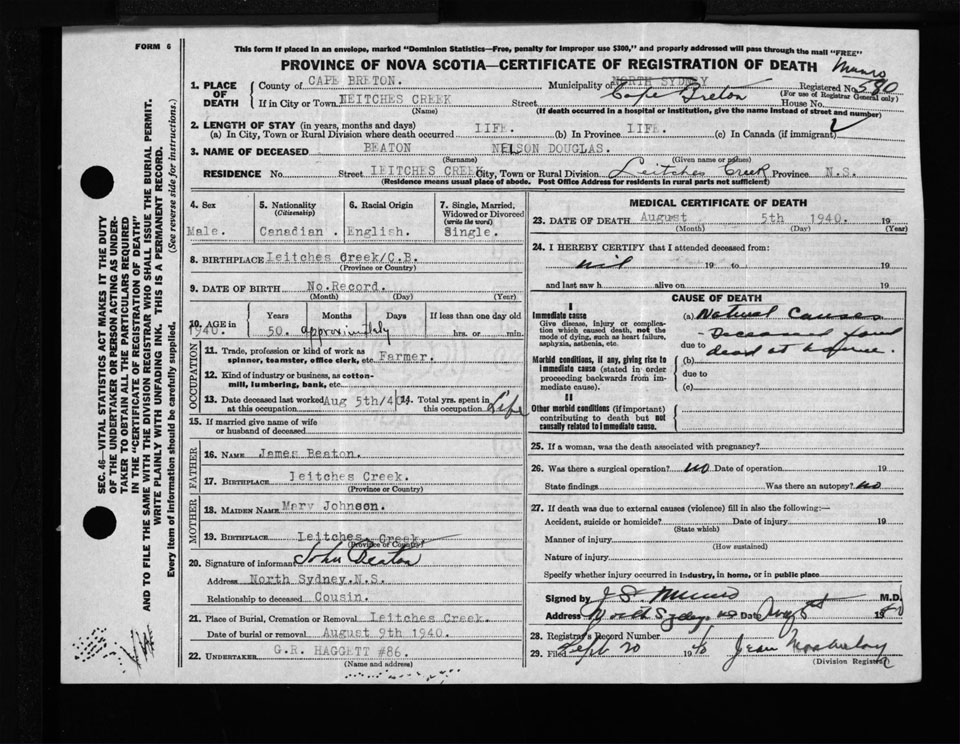 FORM 6
This form if placed in an envelope, marked "Dominion Statistics—Free, penalty for improper use $300," and properly addressed will pass through the mail "FREE"
PROVINCE OF NOVA SCOTIA—CERTIFICATE OF REGISTRATION OF DEATH
Munro
1. PLACE OF DEATH
County of CAPE BRETON.
Municipality of NORTH SYDNEY
Cape Breton
Registered No. 580
(For use of Registrar General only)
If in City or Town NEITCHES CREEK Street House No.
(Name) (If death occurred in a hospital or institution, give the name instead of street and number)
2. LENGTH OF STAY (in years, months and days)
(a) In City, Town or Rural Division where death occurred IIFE. (b) In Province IIFE. (c) In Canada (if immigrant)
3. NAME OF DECEASED BEATON NELSON DOUGLAS.
(Surname) (Given name or names)
RESIDENCE No. Street IEITCHES CREEK City, Town or Rural Division Leitches Creek Province N.S.
(Residence means usual place of abode. Post Office Address for residents in rural parts not sufficient)
4. Sex
Male.
5. Nationality
(Citizenship)
Canadian.
6. Racial Origin
English.
7. Single, Married, Widowed or Divorced
(write the word)
Single.
8. BIRTHPLACE Ieitches Creek/C.B.
(Province or Country)
9. DATE OF BIRTH No.Record.
(Month) (Day) (Year)
10. AGE in Years Months Days If less than one day old
1940. 50. approximately hrs. or min.
OCCUPATION
11. Trade, profession or kind of work as spinner, teamster, office clerk, etc. Farmer.
12. Kind of industry or business, as cotton-mill, lumbering, bank, etc.
13. Date deceased last worked at this occupation Aug 5th/40
14. Total yrs. spent in this occupation Life
15. If married give name of wife or husband of deceased
FATHER
16. NAME James Beaton.
17. BIRTHPLACE Ieitches Creek.
(Province or Country)
MOTHER
18. MAIDEN NAME Mary Johnson.
19. BIRTHPLACE Leitches Creek.
(Province or Country)
20. Signature of informant John Beaton
Address North Sydney.N.S.
Relationship to deceased Cousin.
21. Place of Burial, Cremation or Removal Leitches Creek.
Date of burial or removal August 9th 1940.
22. UNDERTAKER G.R. HAGGETT #86.
(Name and address)
MEDICAL CERTIFICATE OF DEATH
23. DATE OF DEATH August 5th 1940. 19
(Month) (Day) (Year)
24. I HEREBY CERTIFY that I attended deceased from:
nil 19 to 19
and last saw h alive on 19
CAUSE OF DEATH
I
Immediate cause
Give disease, injury or complication which caused death, not the mode of dying, such as heart failure, asphyxia, asthenia, etc.
(a) Natural Causes
- Deceased found
due to dead at home.
Morbid conditions, if any, giving rise to immediate cause (stated in order proceeding backwards from immediate cause).
(b)
due to
(c)
II
Other morbid conditions (if important) contributing to death but not causally related to immediate cause.
25. If a woman, was the death associated with pregnancy?
26. Was there a surgical operation? no Date of operation 19
State findings Was there an autopsy? no
27. If death was due to external causes (violence) fill in also the following:—
Accident, suicide or homicide? Date of injury 19
(State which)
Manner of injury
(How sustained)
Nature of injury
Specify whether injury occurred in industry, in home, or in public place
Signed by J S Munro M.D.
Address North Sydney NS Date Aug 8 1940
28. Registrar's Record Number
29. Filed Sept 20 1940
(Division Registrar)
SEC. 46—VITAL STATISTICS ACT MAKES IT THE DUTY OF THE UNDERTAKER OR PERSON ACTING AS UNDERTAKER TO OBTAIN ALL THE PARTICULARS REQUIRED IN THE "CERTIFICATE OF REGISTRATION OF DEATH" AND TO FILE THE SAME WITH THE DIVISION REGISTRAR WHO SHALL ISSUE THE BURIAL PERMIT.
WRITE PLAINLY WITH UNFADING INK. THIS IS A PERMANENT RECORD.
Every item of information should be carefully supplied. (See reverse side for instructions.)